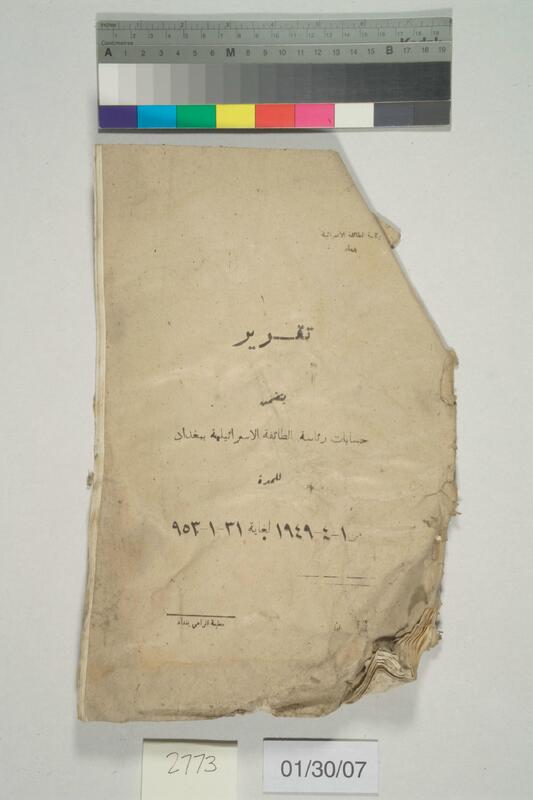 Inches
Centimetres
A 1 2 3 4 5 6 M 8 9 10 11 12 13 14 15 B 17 18 19
Kodak
رئاسة الطائفة الاسرائيلية
بغداد
تقرير
يتضمن
حسابات رئاسة الطائفة الاسرائيلية ببغداد
للمدة
من ١-٤-١٩٤٩ لغاية ٣١-١-٩٥٣
مطبعة الراعي بغداد
2773
01/30/07